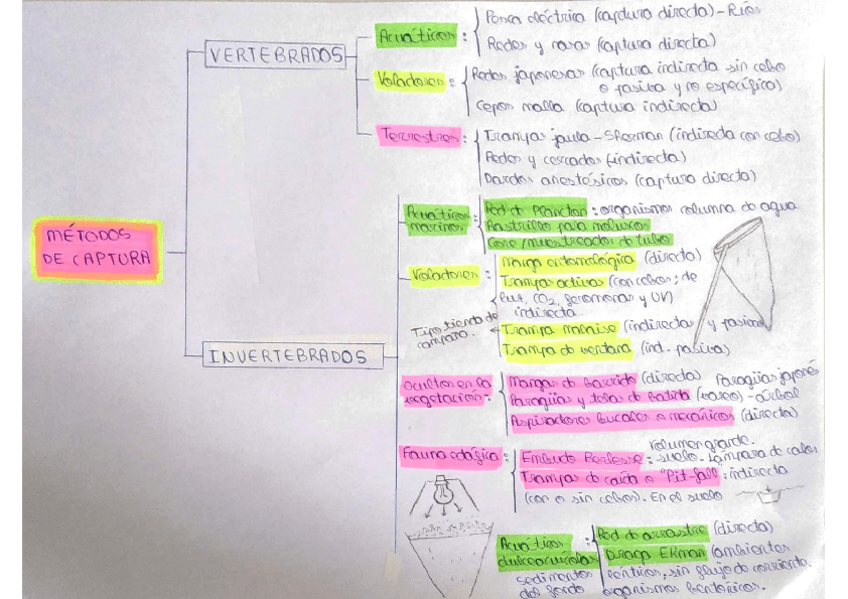 MÉTODOS
DE CAPTURA
VERTEBRADOS
Acuáticos:
Pesca eléctrica (captura directa) - Ríos
Redes y nasas (captura directa)
Voladores:
Redes japonesas (captura indirecta sin cebo
o pasiva y no específica)
Cepos malla (captura indirecta)
Terrestres:
Trampas jaula - Sherman (indirecta con cebo)
Redes y cercados (indirecta)
Dardos anestésicos (captura directa)
INVERTEBRADOS
Acuáticos
marinos:
Red de Plancton: organismos columna de agua
Rastrillo para moluscos
Core/muestreador de tubo
Voladores:
Manga entomológica (directa)
Trampa activas (con cebos; de
luz, CO2, feromonas y UV)
indirecta
Tipo tienda de
campaña.
Trampa malaise (indirecta y pasiva)
Trampa de ventana (ind. pasiva)
Ocultos en la
vegetación:
Mangas de barrido (directa)
Paragüas japonés
Paragüas y telas de batida (vareo) - árbol
Aspiradores bucales o mecánicos (directa)
Fauna edáfica:
volumen grande.
Embudo Berlesse: suelo - lámpara de calor
Trampas de caída o "Pit-fall": indirecta
(con o sin cebos). En el suelo
Acuáticos
dulceacuícolas:
sedimentos
del fondo
Red de arrastre (directa)
Draga Ekman (ambientes
lénticos, sin flujo de corriente.
organismos bentónicos.